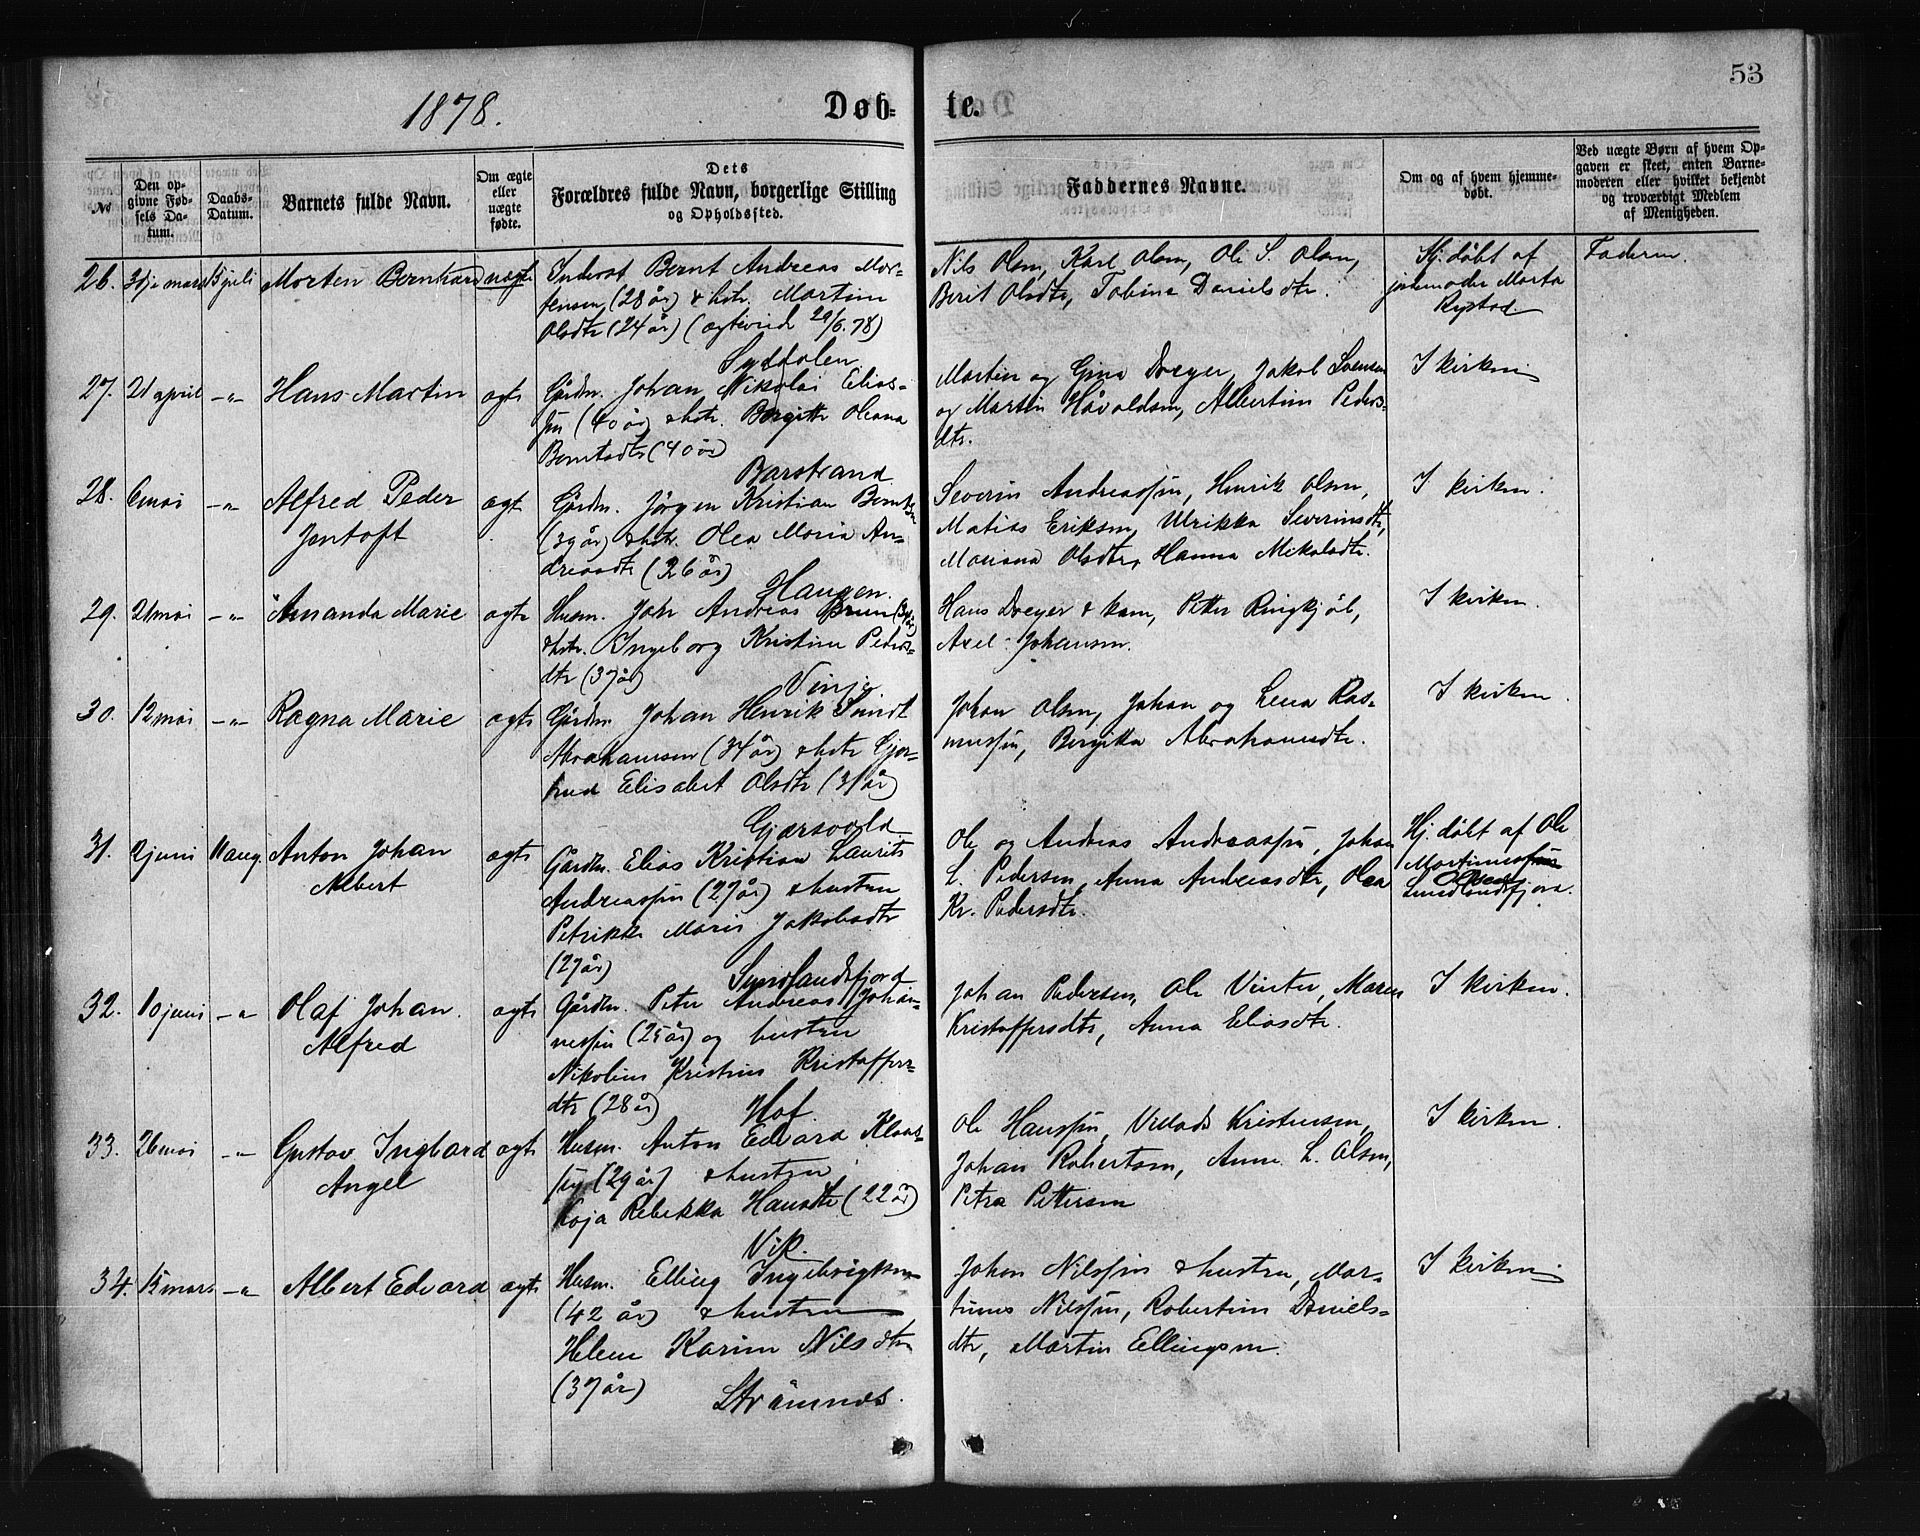 53
1878.
Døb-
te.
No
Den op-
givne Fød-
sels Da-
tum.
Daabs-
Datum.
Barnets fulde Navn.
Om ægte
eller
uægte
fødte.
Dets
Forældres fulde Navn, borgerlige Stilling
og Opholdssted.
Faddernes Navne.
Om og af hvem hjemme-
døbt.
Ved uægte Børn af hvem Op-
gaven er skeet, enten Barne-
moderen eller hvilket bekjendt
og troværdigt Medlem
af Menigheden.
26. 31te mars juli Morten Bernhard uægte
Inderst Bernt Andreas Mor-
tensen (28 år) & hstr. Martine
Olsdtr (24 år) (ægteviede 29/6.78)
Syddalen
Nils Olsen, Karl Olsen, Ole S. Olsen,
Berit Olsdtr, Tobina Danielsdtr.
Hj. døbt af
jordemoder Marta
Rystad.
Faderen.
27. 21 april -"- Hans Martin ægte
Gårdm. Johan Nikolai Elias-
sen (40 år) & hstr. Bergitte Oleana
Berntsdtr (40 år)
Barstrand
Martin og Gina Dreyer, Jakob Svensen
og Martin Håvoldsen, Albertine Peders-
dtr.
I kirken
28. 6 mai -"- Alfred Peder
Jentoft
ægte
Gårdm. Jörgen Kristian Berntsen
(39 år) & hstr. Olea Maria An-
dreasdtr (26 år)
Haugen.
Severin Andreassen, Henrik Olsen,
Matias Eriksen, Ulrikka Severinsdtr,
Mariana Olsdtr, Hanna Mikalsdtr.
I kirken.
29. 21 mai -"- Amanda Marie ægte
Husm. Joh. Andreas Bruun
& hstr. Ingeborg Kristine Peders-
dtr (37 år)
Vinje
Hans Dreyer & kone, Petter Ringkjöb,
Axel Johansen.
I kirken.
30. 12 mai -"- Ragna Marie ægte
Gårdm. Johan Henrik Smidt
Abrahamsen (34 år) & hstr Gjer-
trud Elisabet Olsdtr (31 år)
Gjærsvold
Johan Olsen, Johan og Lena Ras-
mussen, Bergitta Abrahamsdtr.
I kirken.
31. 2 juni 11 aug. Anton Johan
Albert
ægte
Gårdm. Elias Kristian Laurits
Andreassen (27 år) & hustru
Petrikke Marie Jakobsdtr
(27 år)
Sundlandsfjord
Ole og Andreas Andreassen, Johan
L. Pedersen, Anna Andreasdtr, Olea
Kr. Pedersdtr.
Hj. döbt af Ole
Martinussen
Olsen
Sundlandsfjord.
32. 10 juni -"- Olaf Johan
Alfred
ægte
Gårdm. Peter Andreas Johan-
nessen (25 år) og hustru
Nikoline Kristine Kristoffers-
dtr (28 år)
Hof.
Johan Pedersen, Ole Vinter, Maren
Kristoffersdtr, Anna Eliasdtr.
I kirken.
33. 26 mai -"- Gustav Ingvard
Angel
ægte
Husm. Anton Edvard Klaus-
sen (29 år) & hustru
Koja Rebekka Hansdtr (22 år)
Vik.
Ole Hanssen, Villads Kristensen,
Johan Robertsen, Anne L. Olsen,
Petra Pettersen
I kirken.
34. 15 mars -"- Albert Edvard ægte
Husm. Elling Ingebrigtsen
(42 år) & hustru
Helene Karine Nilsdtr
(37 år)
Strømnes.
Johan Nilssen & hustru, Mar-
tinus Nilssen, Robertine Daniels-
dtr, Martin Ellingsen.
I kirken